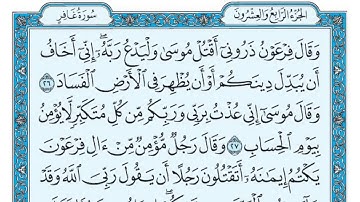 سُورَةُ غَافِرٍ الجُزْءُ الرَّابِعُ وَالعِشْرُونَ
وَقَالَ فِرْعَوْنُ ذَرُونِيٓ أَقْتُلْ مُوسَىٰ وَلْيَدْعُ رَبَّهُۥٓ ۖ إِنِّيٓ أَخَافُ
أَن يُبَدِّلَ دِينَكُمْ أَوْ أَن يُظْهِرَ فِي ٱلْأَرْضِ ٱلْفَسَادَ ٢٦
وَقَالَ مُوسَىٰٓ إِنِّي عُذْتُ بِرَبِّي وَرَبِّكُم مِّن كُلِّ مُتَكَبِّرٍ لَّا يُؤْمِنُ
بِيَوْمِ ٱلْحِسَابِ ٢٧ وَقَالَ رَجُلٌ مُّؤْمِنٌ مِّنْ ءَالِ فِرْعَوْنَ
يَكْتُمُ إِيمَٰنَهُۥٓ أَتَقْتُلُونَ رَجُلًا أَن يَقُولَ رَبِّيَ ٱللَّهُ وَقَدْ